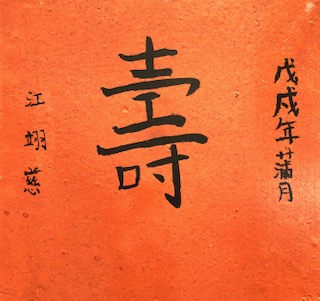 戊戌年蒲月
壽
江翊慈